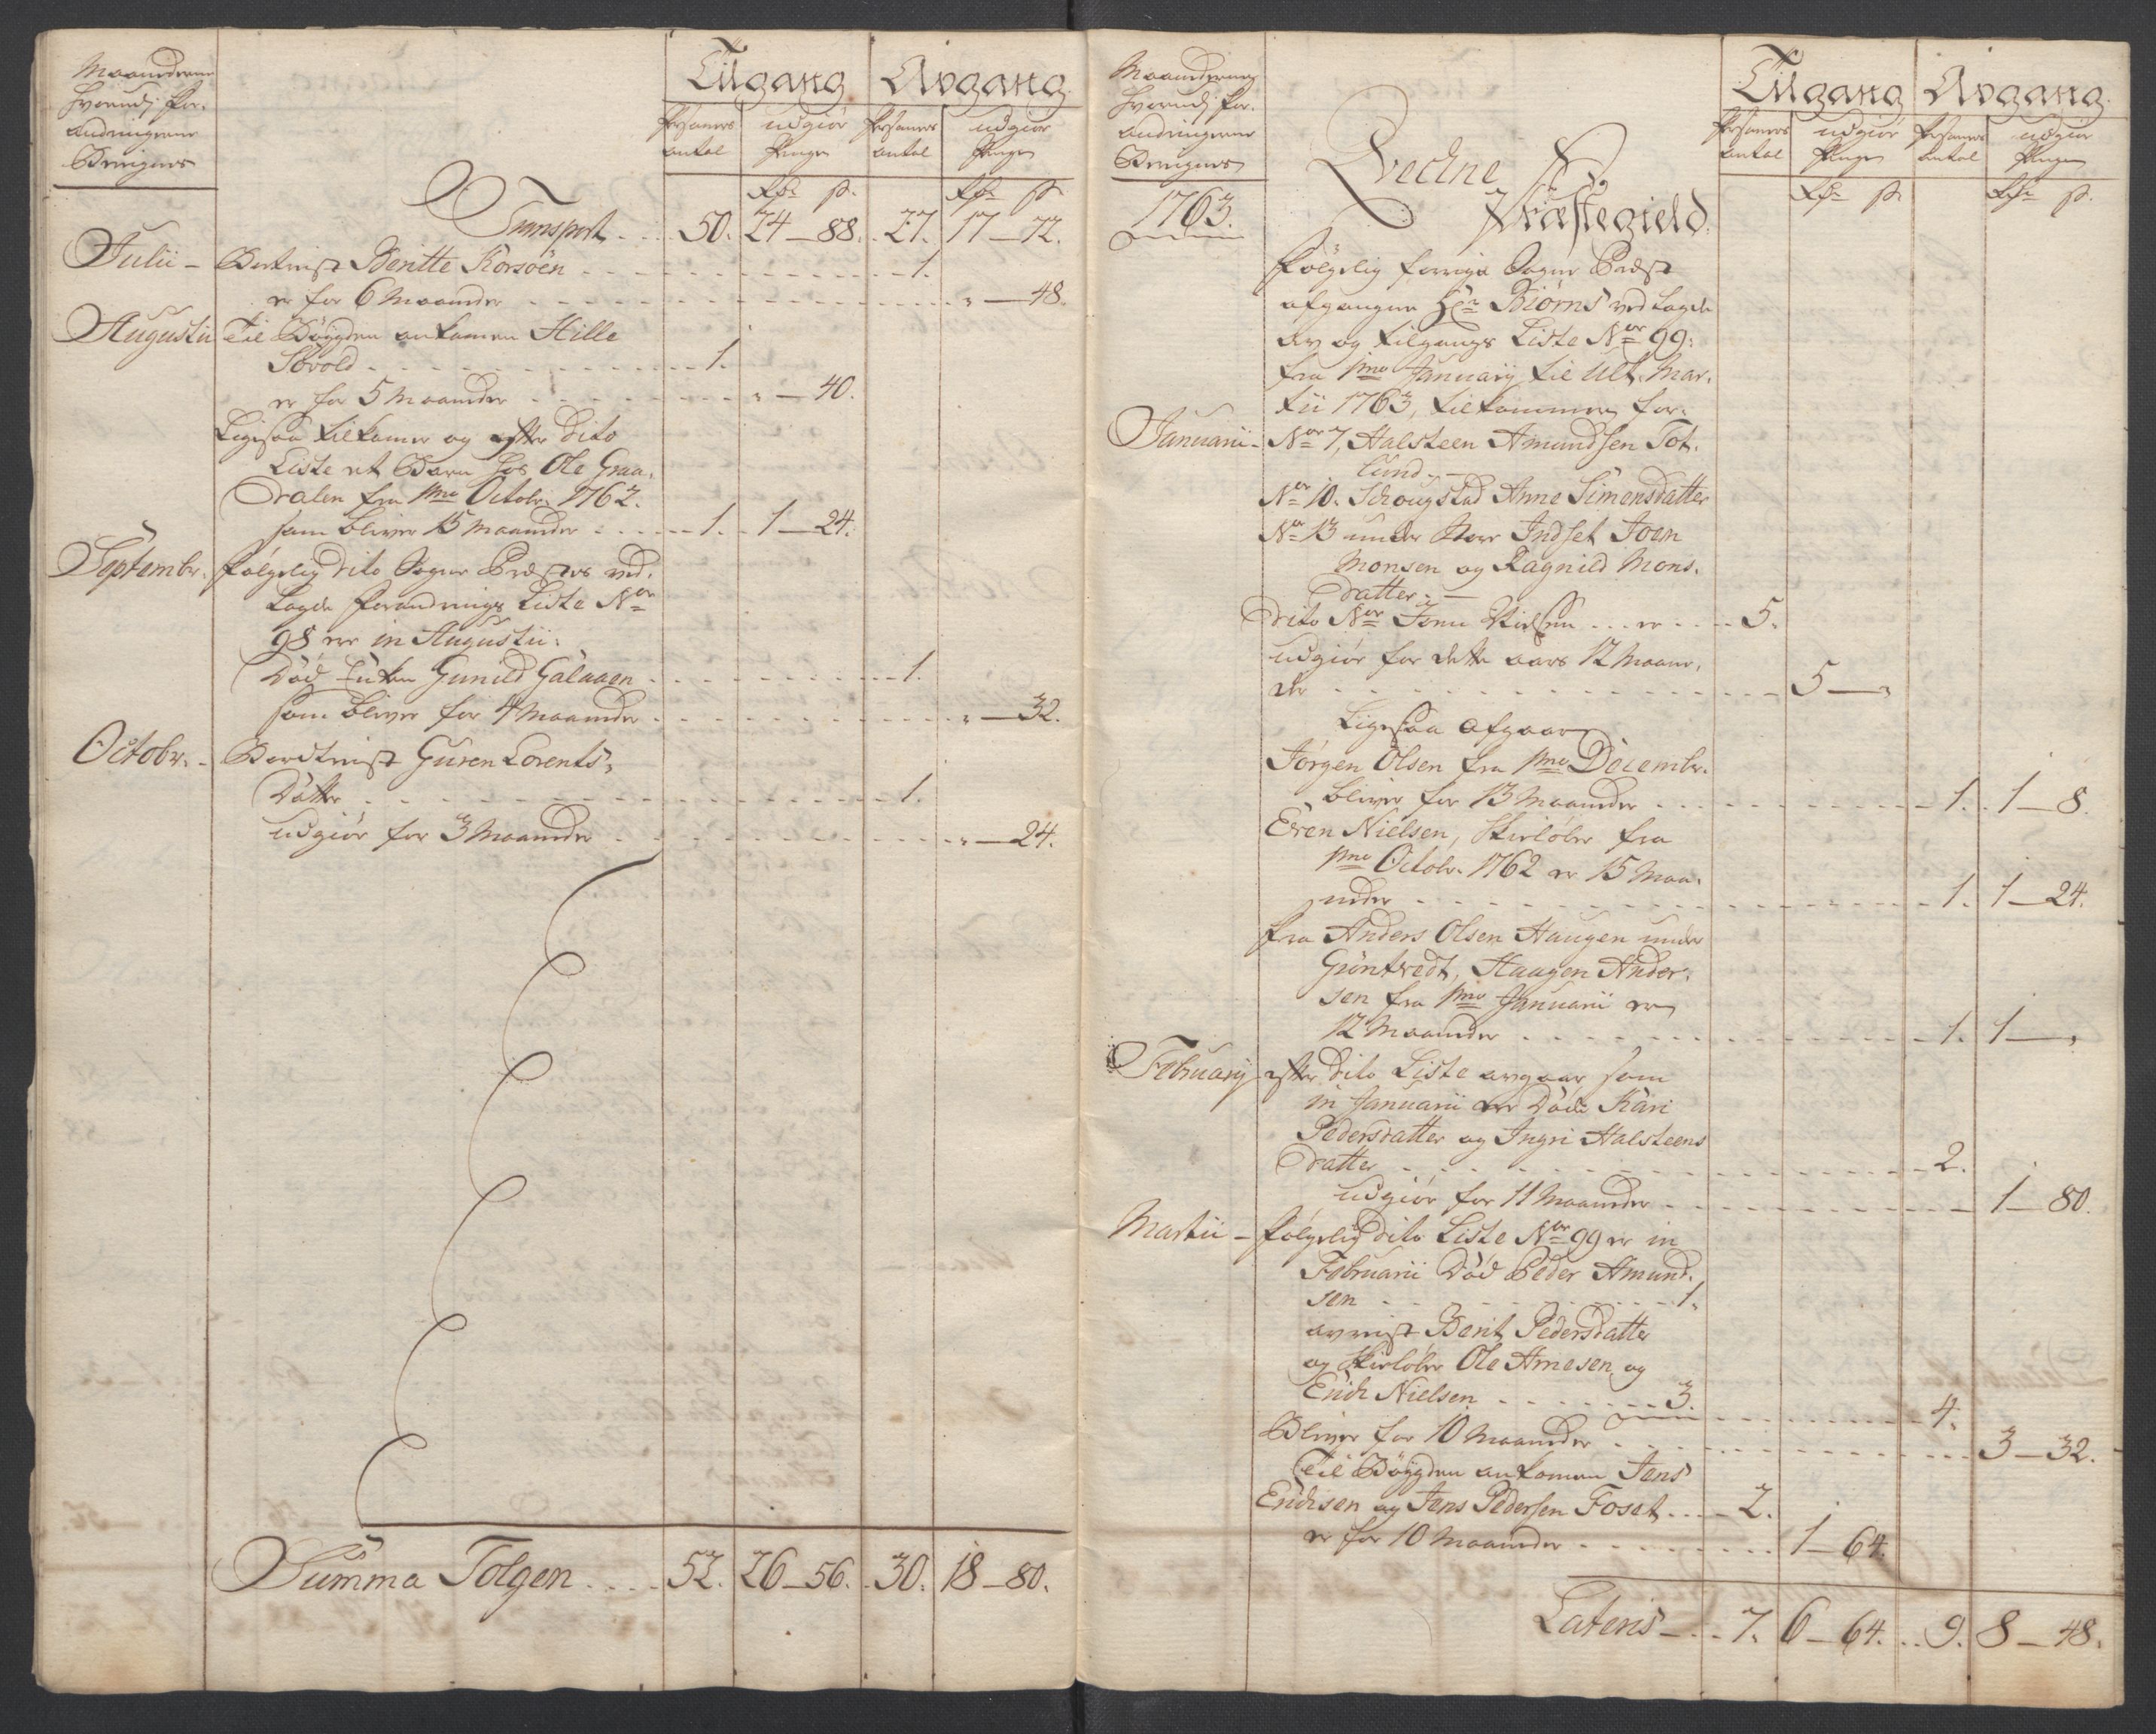 Maanederne
hvorudj for-
andringerne
Bevigner
Tilgang Avgang
Persaners antal udgiör Penge Persaners antal udgiör Penge
Rdr ß. Rdr ß
Transport . . 50. 24 – 88. 27. 17 – 72.
Julii – Bortreist Beritte Korsöen . . . 1.
er for 6 Maaneder . . . " – 48.
Augustii Til Böygden ankomen Hille
Sövold . . . 1.
er for 5 Maaneder . . . " – 40.
Ligesaa tilkomer og efter dito
Liste et Barn hos Ole Graa-
dalen fra 1mo Octobr. 1762.
som bliver 15 Maaneder . . . 1. 1 – 24.
Septembr. fölgelig dito Sogne Præstes ved-
lagde forandrings Liste Nor
98 er in Augustii.
Död Enken Gunild Galaaen . . . 1.
som bliver for 4 Maaneder . . . " – 32.
Octobr. – Bordtreist Guren Lorents-
Datter . . . 1.
udgiör for 3 Maaneder . . . " – 24.
Summa Tolgen . . . 52. 26 – 56. 30. 18 – 80.
Maanederne
hvorudj for-
andringerne
Bevigner
Tilgang Avgang
Persaners antal udgiör Penge Persaners antal udgiör Penge
Rdr ß Rdr ß.
1763.
Qvechne
Præstegield.
fölgelig forrige Sogne Præst
afgangne Hr Biörns vedlagde
Av og tilgangs Liste Nor 99.
fra 1mo January til Ult. Mar-
tii 1763, tilkommer for.
Januarii – Nor 7, Halsteen Amundsen Tot-
lund. –
Nor 10. Schougstad Anne Simensdatter
Nor 13 under Store Indset Joen
Monsen og Ragnild Mons-
datter. –
Dito Nor Jönn Nielsen . . er . . . 5.
udgiör for dette aars 12 Maane-
der . . . 5 – "
Ligesaa afgaar
Jörgen Olsen fra 1mo Decembr.
bliver for 13 Maaneder . . . 1. 1 – 8.
Even Nielsen, Skielöber fra
1mo Octobr. 1762 er 15 Maa-
neder . . . 1. 1 – 24.
fra Anders Olsen Haugen under
Gröntvedt, Haagen Ander-
sen fra 1mo Januarii er
12 Maaneder . . . 1. 1 – "
February efter dito Liste avgaar som
in Januarii er Döde Kari
Pedersdatter og Ingri Halsteens
datter . . . 2.
udgiör for 11 Maaneder . . . 1 – 80.
Martii – fölgelig dito Liste Nor 99 er in
Februarii Död Peder Amund-
sen . . . 1.
avreist Berit Pedersdatter
og Skielöber Ole Arnesen og
Erich Nielsen . . . 3. . . . 4.
Bliver for 10 Maaneder . . . 3 – 32.
Til Böygden ankomen Jens
Erichsen og Jens Pedersen Foset . . . 2.
er for 10 Maaneder . . . 1 – 64.
Lateris – . . 7. 6 – 64. . . 9. 8 – 48.